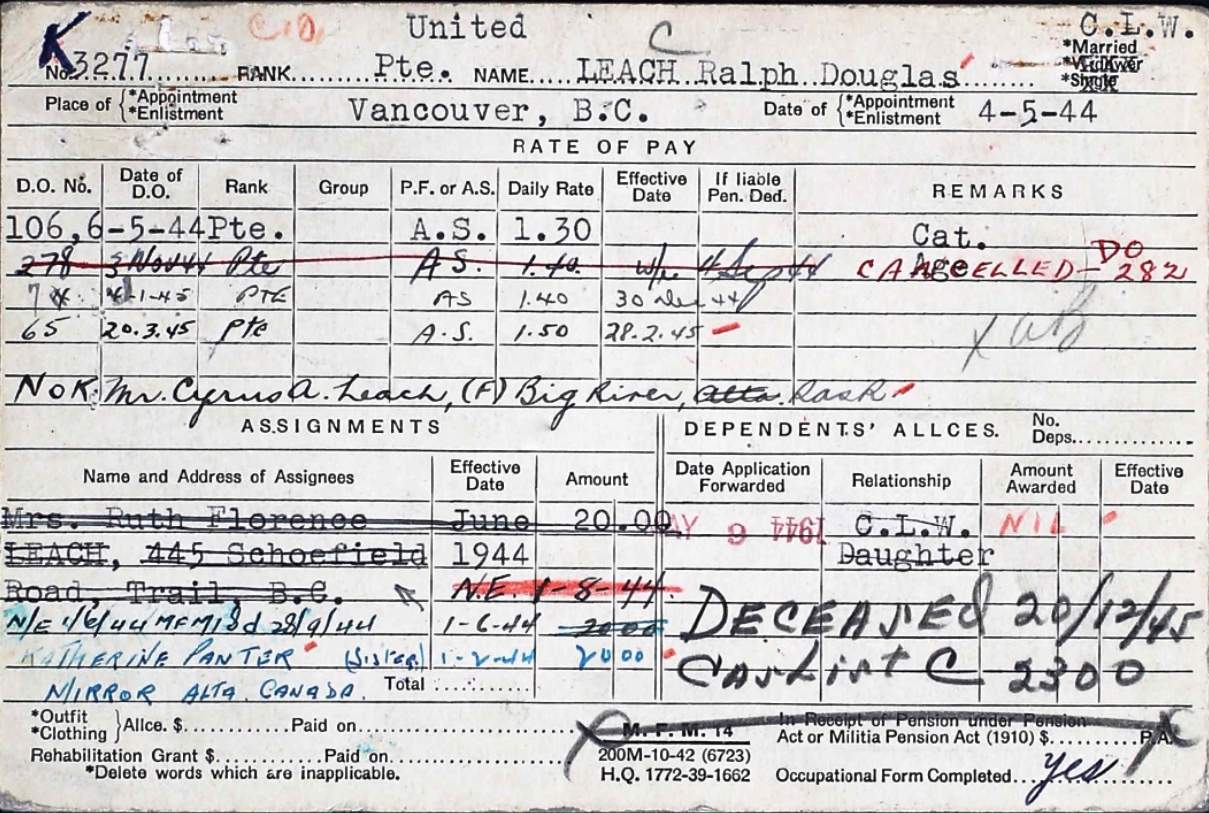 United C.L.W.
C
K
No. 3277 RANK Pte. NAME LEACH Ralph Douglas *Married *Widower *Single
Place of {*Appointment *Enlistment Vancouver, B.C. Date of {*Appointment *Enlistment 4-5-44
RATE OF PAY
D.O. No. Date of D.O. Rank Group P.F. or A.S. Daily Rate Effective Date If liable Pen. Ded. REMARKS
106, 6-5-44 Pte. A.S. 1.30 Cat.
278 5 Nov 44 Pte A.S. 1.40 W/e 4 Sep 44 Age CANCELLED - DO 282
4-1-45 PTE AS 1.40 30 Dec 44
65 20.3.45 Pte A.S. 1.50 28.2.45 -
NOK Mr. Cyrus A. Leach, (F) Big River, Alta. Sask
ASSIGNMENTS DEPENDENTS' ALLCES. No. Deps.
Name and Address of Assignees Effective Date Amount Date Application Forwarded Relationship Amount Awarded Effective Date
Mrs. Ruth Florence June 20.00 MAY 9 1944 C.L.W. NIL
LEACH, 445 Schoefield 1944 Daughter
Road, Trail, B.C. N.E. 1-8-44
N/E 1/6/44 MFM18d 28/9/44 1-6-44 2000 DECEASED 20/12/45
KATHERINE PANTER (Sister) 1-2-44 2000 Cas List C 2300
MIRROR ALTA CANADA Total
*Outfit *Clothing } Allce. $ Paid on M. F. M. 14 In Receipt of Pension under Pension Act or Militia Pension Act (1910) $ P.A.
Rehabilitation Grant $ Paid on 200M-10-42 (6723)
*Delete words which are inapplicable. H.Q. 1772-39-1662 Occupational Form Completed yes